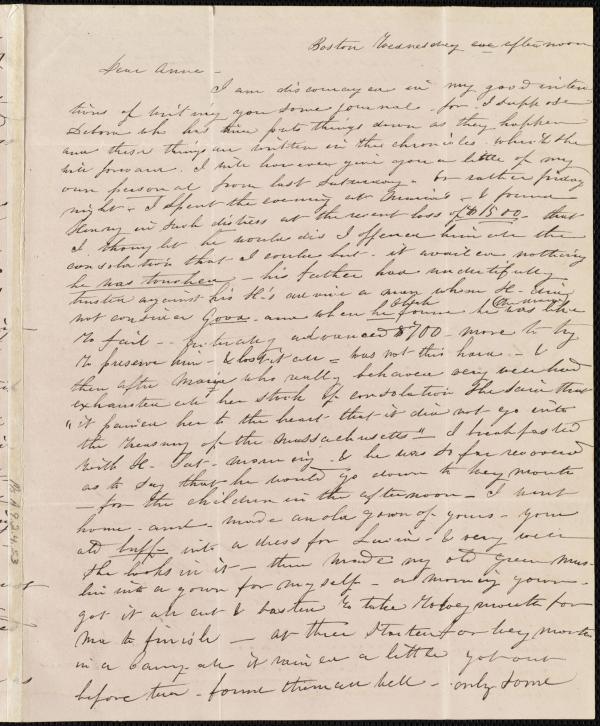 Boston Wednesday eve afternoon
Dear Anne -
I am discouraged in my good inten
tions of writing you some journal - for I suppose
Debora who has time puts things down as they happen
and these things are written in the chronicles which she
will forward. I will however give you a little of my
own personal from last Saturday - or rather friday
night - I spent the evening at & found
Henry in such distress at the recent loss of $1500 - that
I thought he would die I offered him all the
consolation that I could but it availed nothing
he was touched, his father had undutifully
trusted against his H's advice a man whom H- did
not consider Good and when he found he was like
to fail - advanced $700 - more to try
to preserve him - & lost it all = was not this hard - &
then after Maria who really behaved very well had
exhausted all her stock of consolation She said that
"it pained her to the heart that it did not go into
the Treasury of the Massachusetts" - I breakfasted
with H- Sat- morning & he was so far recovered
as to say that he would go down to Weymouth
- for the children in the afternoon - I went
home - and - made an old gown of yours - your
old buff - into a dress for & very well
she looks in it - then made my old green mus-
lin into a gown for myself - a morning gown -
got it all cut & basted to take to Weymouth for
Ma to finish - at three started for Weymouth
in a carryall it rained a little got out
before tea - found them all well - only some